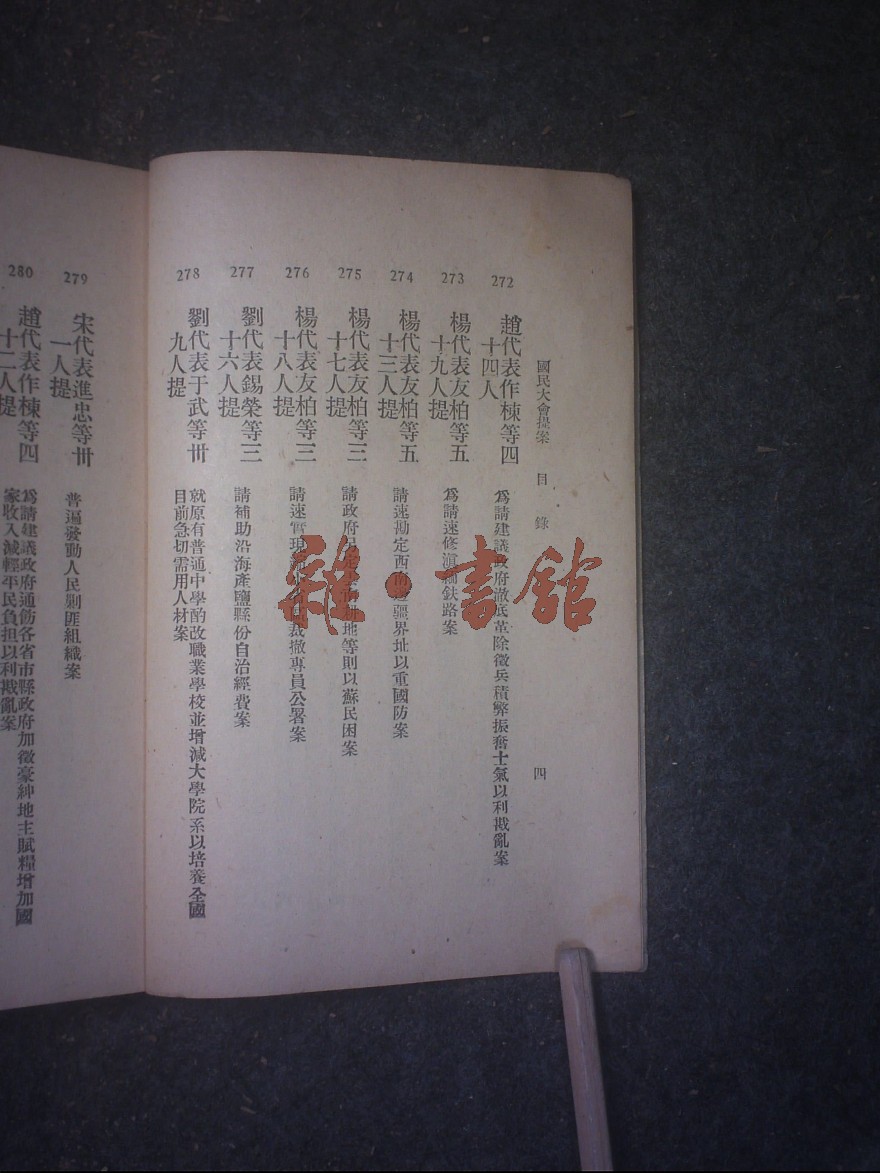 國民大會提案 目錄 四
272
趙代表作棟等四
十四人
為請建議政府澈底革除徵兵積弊振奮士氣以利戡亂案
273
楊代表友柏等五
十九人提
為請速修滇緬鉄路案
274
楊代表友柏等五
十三人提
請速勘定西南邊疆界址以重國防案
275
楊代表友柏等三
十七人提
請政府 耕地等則以蘇民困案
276
楊代表友柏等三
十八人提
請速實現 裁撤專員公署案
277
劉代表錫榮等三
十六人提
請補助沿海產鹽縣份自治經費案
278
劉代表于武等卅
九人提
就原有普通中學酌改職業學校並增減大學院系以培養全國
目前急切需用人材案
279
宋代表進忠等卅
一人提
普遍發動人民剿匪組織案
280
趙代表作棟等四
十二人提
為請建議政府通飭各省市縣政府加徵豪紳地主賦糧增加國
家收入減輕平民負担以利戡亂案
雜·書館